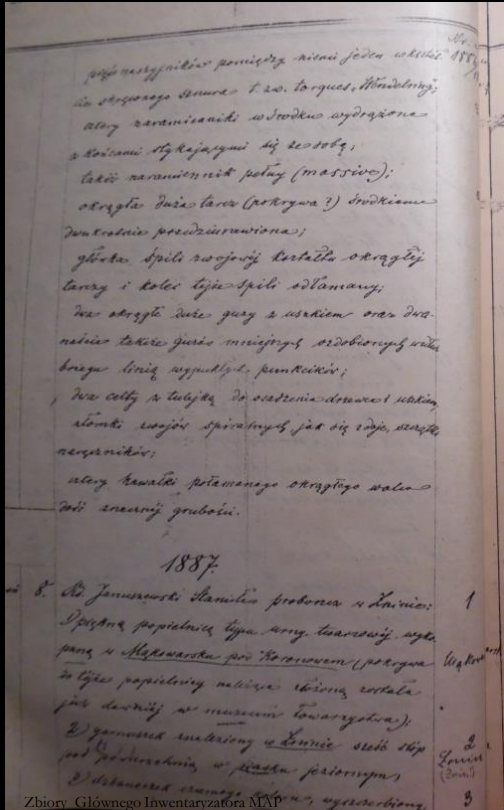 Nr.
pięć naszyjników pomiędzy niemi jeden w kształ-
cie skręconego sznura t. zw. torques,
cztery naramienniki w środku wydrążone
z końcami stykającymi się ze sobą;
takiż naramiennik pełny (massive);
okrągła duża tarcz (pokrywa?) środkiem
dwukrotnie przedziurawiona;
główka śpili zwojowej kształtu okrągłej
tarczy i kolec tejże śpili odłamany;
dwa okrągłe duże guzy z uszkiem oraz dwa-
naście takiże guzów mniejszych ozdobionych
brzegu linią wypukłych punkcików;
dwa celty z tulejką do osadzenia drzewca i uszkiem,
ułomki zwojów spiralnych, jak się zdaje, szczątki
naręczników;
cztery kawałki połamanego okrągłego
dość znacznej grubości.
1887.
8. Ks. Januszewski Stanisław proboszcz w Żninie: 1
1) piękną popielnicę typu urny twarzowej, wyko-
paną w Mąkowarsku pod Koronowem (pokrywa
do tejże popielnicy należąca złożoną została
już dawniej w muzeum towarzystwa);
2) garnuszek znaleziony w Żninie sześć stóp 2
pod powierzchnią w piasku jeziornym, Żnin
(Żnin)
3) dzbanuszek czarnego koloru, wyszczerbiony 3
Zbiory Głównego Inwentaryzatora MAP